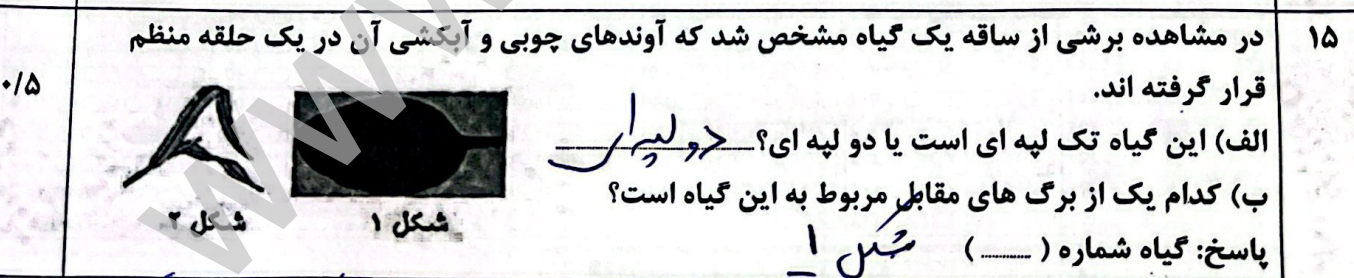 ۱۵
در مشاهده برشی از ساقه یک گیاه مشخص شد که آوندهای چوبی و آبکشی آن در یک حلقه منظم
قرار گرفته اند.
۰/۵
الف) این گیاه تک لپه ای است یا دو لپه ای؟ دو لپه ای
ب) کدام یک از برگ های مقابل مربوط به این گیاه است؟
پاسخ: گیاه شماره ( ........ ) شکل ۱
شکل ۱
شکل ۲
www